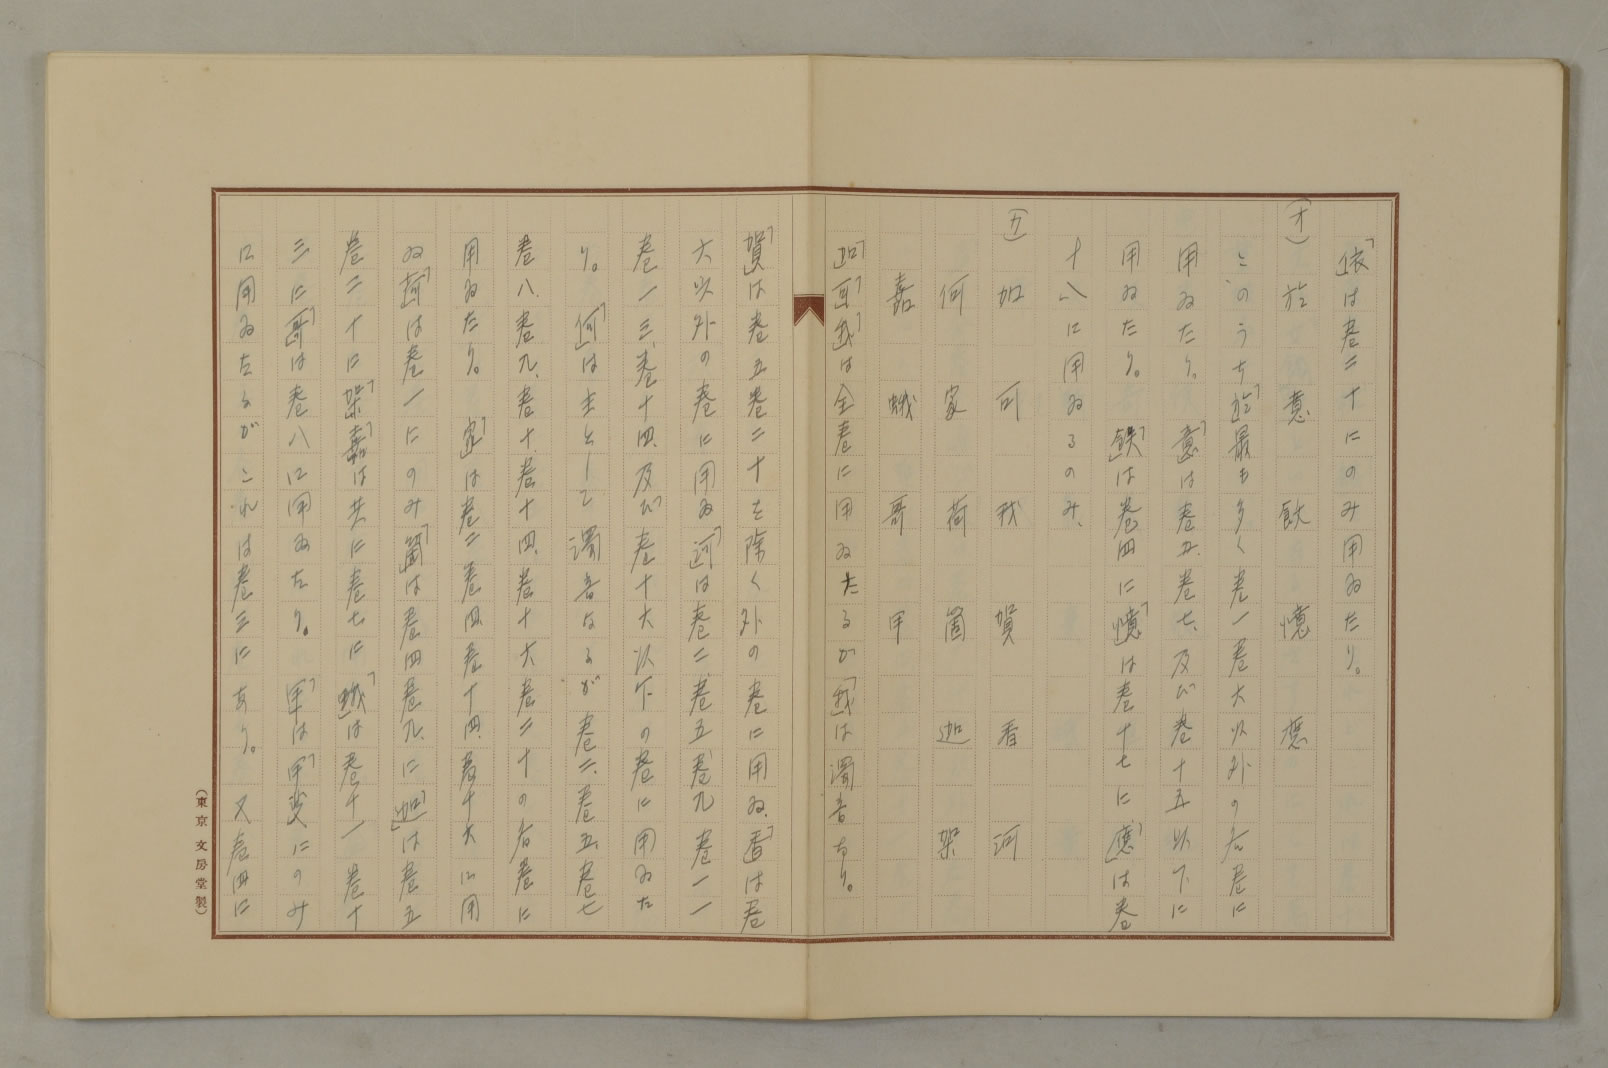 「依」は巻二十にのみ用ゐたり。
(オ) 於 意 飫 憶 應
このうち「於」最も多く巻一巻六以外の各巻に
用ゐたり。「意」は巻五、巻七、及び巻十五以下に
用ゐたり。「飫」は巻四に「憶」は巻十七に「應」は巻
十八に用ゐるのみ、
(カ) 加 可 我 賀 香 河
何 家 荷 箇 迦 架
嘉 蛾 哥 甲
「加」「可」「我」は全巻に用ゐたるが「我」は濁音なり。
「賀」は巻五巻二十を除く外の巻に用ゐ、「香」は巻
六以外の巻に用ゐ「河」は巻二巻五巻九巻一一
巻一三、巻十四、及び巻十六以下の巻に用ゐた
り。「何」は主として濁音なるが巻二、巻五、巻七
巻八、巻九、巻十、巻十四、巻十六巻二十の各巻に
用ゐたり。「家」は巻二巻四、巻十四、巻十六に用
ゐ「荷」は巻一にのみ「箇」は巻四巻九、に「迦」は巻五
巻二十に「架」「嘉」は共に巻七に「蛾」は巻十一巻十
三に「哥」は巻八に用ゐたり。「甲」は「甲斐」にのみ
に用ゐたるがこれは巻三にあり。又巻四に
(東京 文房堂製)